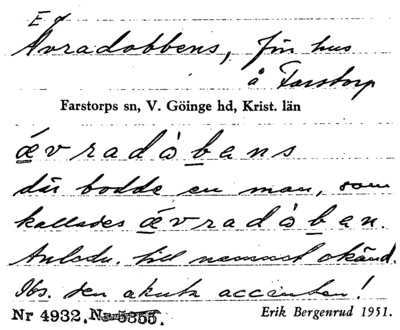 Evradobbens, förr hus
å Farstorp
Farstorps sn, V. Göinge hd, Krist. län
ævradòbans
där bodde en man, som
kallades ævradòban.
Anledn. till namnet okänd.
Obs. den akuta accenten!
Nr 4932. Erik Bergenrud 1951.